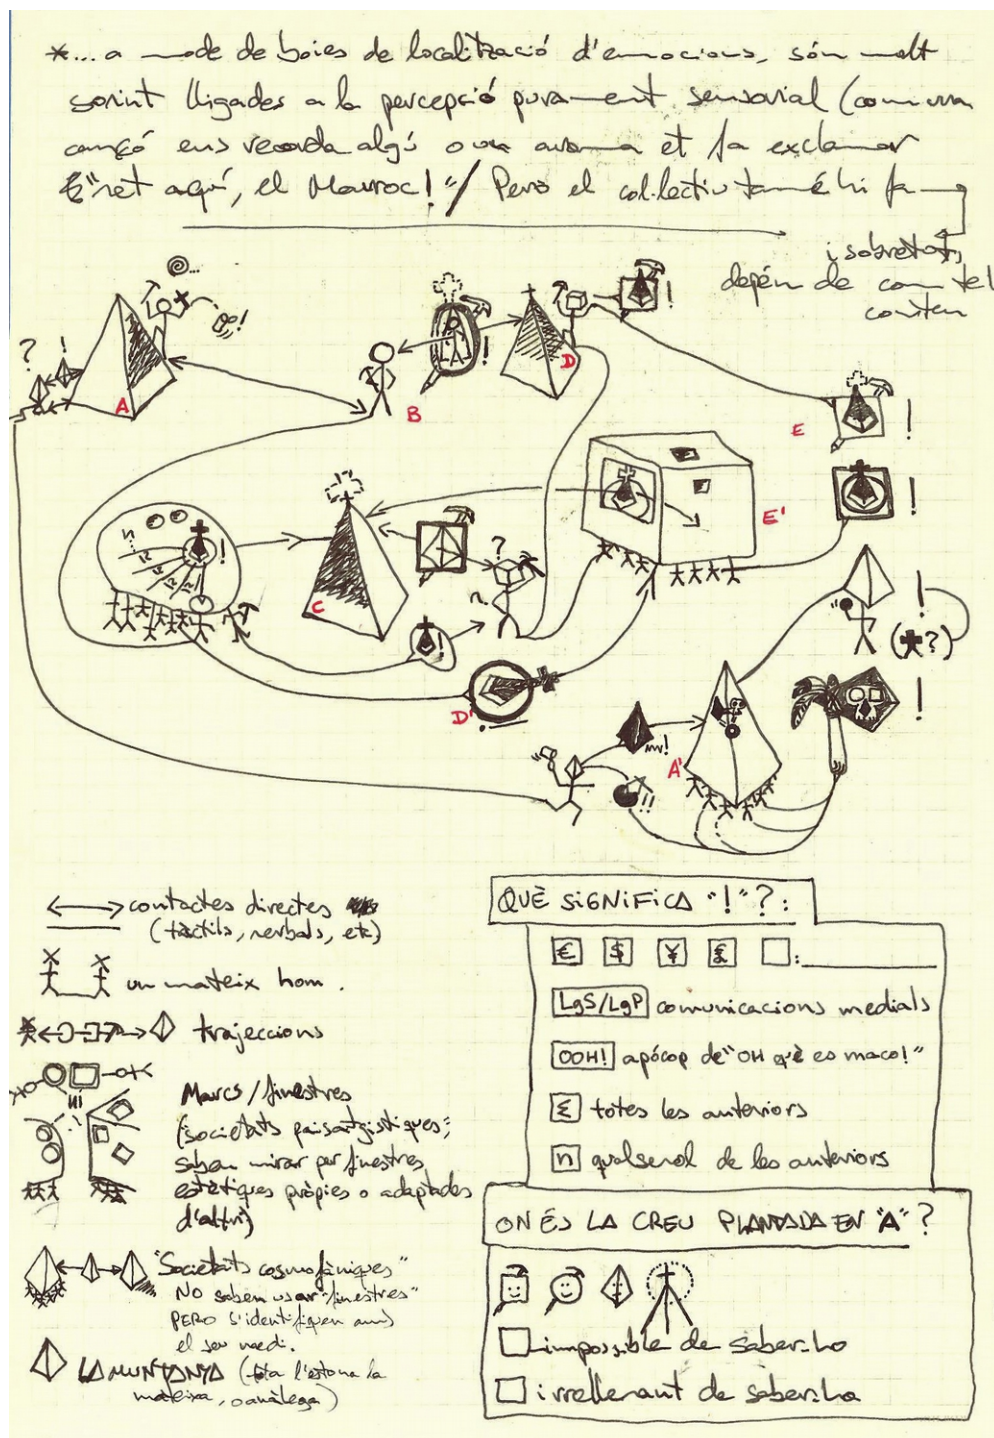 *... a mode de boies de localització d'emocions, són molt
sovint lligades a la percepció purament sensorial (com una
cançó ens recorda algú o un aroma et fa exclamar
"ret aquí, el Marroc!"/ Pero el col·lectiu també hi fa
i sobretot,
depén de com tel
conten
? !
A
B
!
D
!
E
!
!
C
?
!
E'
!
D'
!
(?)
!
A'
!!
contactes directes
(tàctils, verbals, etc)
un mateix hom.
trajeccions
Marcs/finestres
(societats paisatgístiques;
saben mirar per finestres
estètiques pròpies o adaptades
d'altri)
"Societats cosmofàniques"
NO saben usar "finestres"
PERO s'identifiquen amb
el seu medi.
LA MUNTANYA (tota l'estona la
mateixa, o anàloga)
QUÈ SIGNIFICA "!"?:
€ $ ¥ £ :
LgS/LgP comunicacions medials
OOH! apócop de "OH què es maco!"
Σ totes les anteriors
n qualsevol de les anteriors
ON ÉS LA CREU PLANTADA EN "A"?
impossible de saber-ho
irrellevant de saber-ho